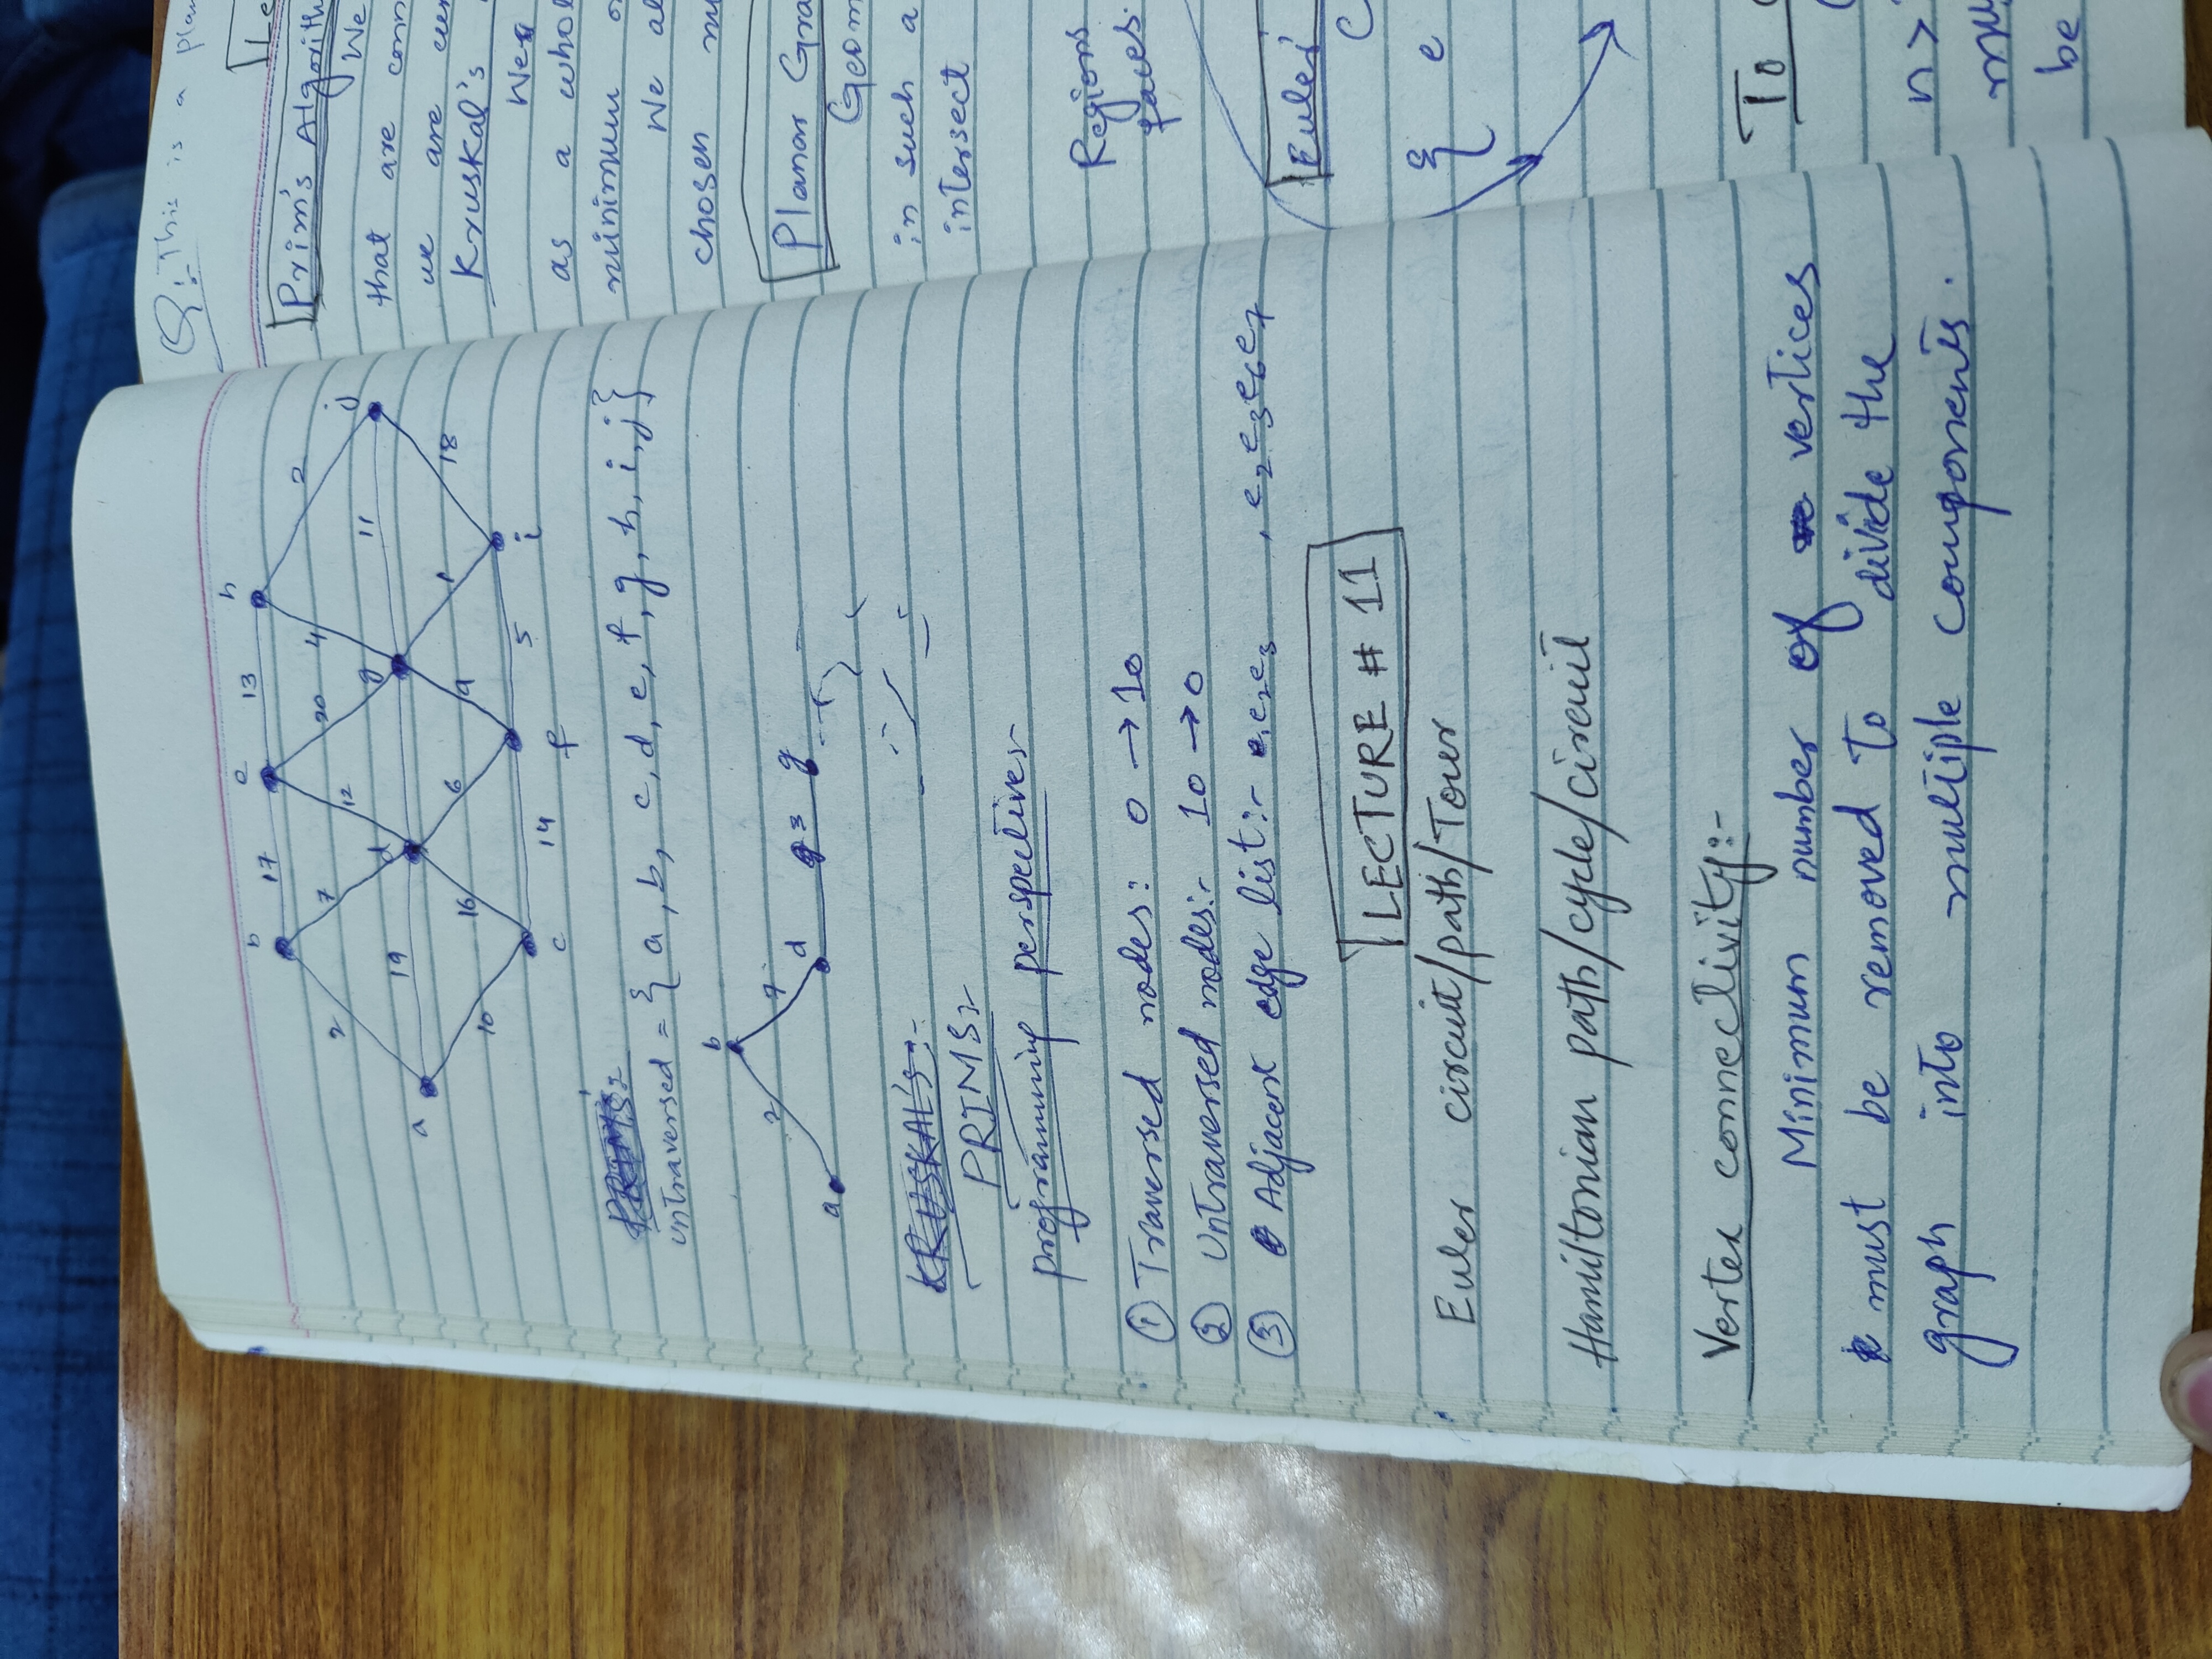 b 17 e 13 h
2 7 12 20 4 2
a 19 d g 11 j
10 16 6 9 1 18
c 14 f 5 i
PRIM'S:-
untraversed = { a, b, c, d, e, f, g, h, i, j }
b
2 7 d 3 g
a
KRUSKAL'S:-
PRIMS:-
programming perspective:-
① Traversed nodes: 0 → 10
② Untraversed nodes:- 10 → 0
③ Adjacent edge list:- e₁e₂e₃ , e₂e₃e₆e₇
LECTURE # 11
Euler circuit/path/Tour
Hamiltonian path/cycle/circuit
Vertex connectivity:-
Minimum number of vertices
must be removed to divide the
graph into multiple components.
Q:- This is a
Prim's
We
that are
we are
Kruskal's
We
as a
minimum
We
chosen
Planar
in such a
intersect
Regions
faces
Euler
e
To
n >
be